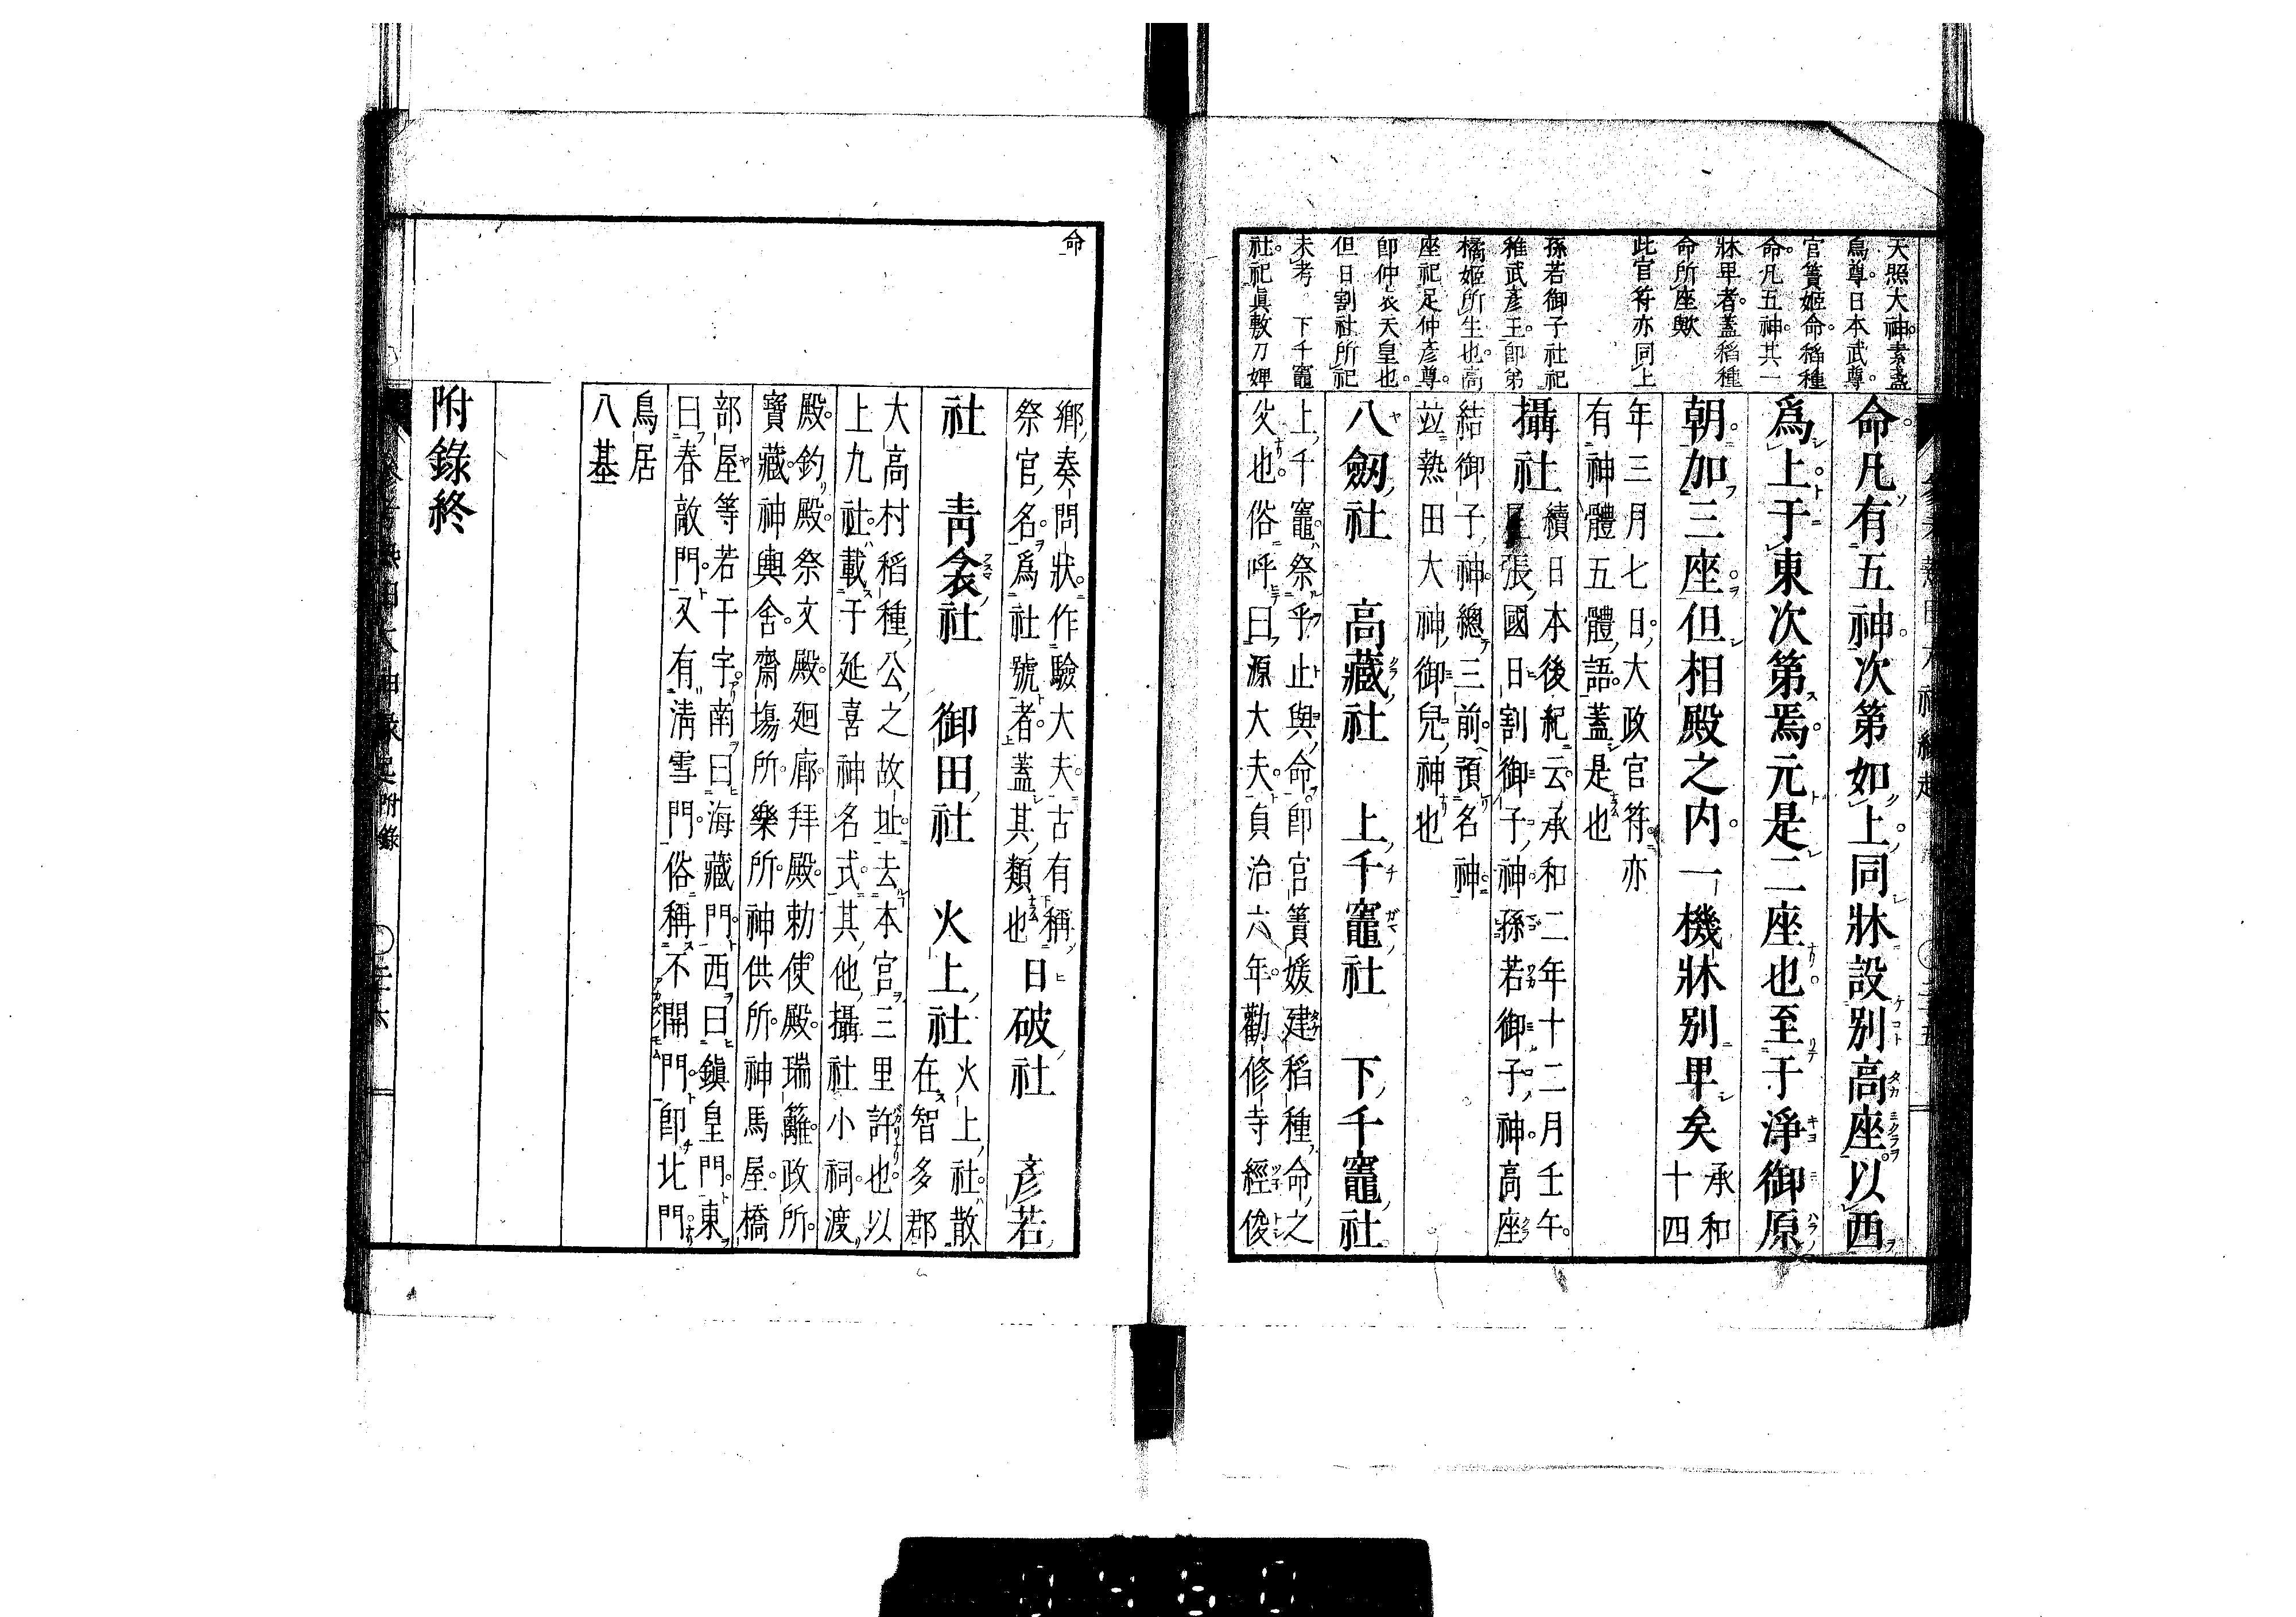 天照大神。素盞
烏尊。日本武尊。
官簀姬命。稻種
命。凡五神。其一
牀畢者。蓋稻種
命所座歟
此官符亦同上
孫若御子社祀
稚武彥王。卽弟
橘姬所生也。高
座祀足仲彥尊。
卽仲哀天皇也。
但日割社所祀
未考　下千竈
社。祀眞敷刀婢
命。凡有五神。次第如上。同牀設別高座。以西
爲上。于東次第焉。元是二座也。至于淨御原
朝。加三座。但相殿之内。一機牀別畢矣
承和
十四
年三月七日。大政官符。亦
有神體五體語。蓋是也
攝社
續日本後紀云。承和二年十二月壬午。
尾張國日割御子神。孫若御子神。高座
結御子神。總三前。預名神。
竝熱田大神御兒神也
八劔社　高藏社　上千竈社　下千竈社
上千竈。祭乎止與命。卽官簀媛建稻種命之
父也。俗呼曰源大夫。貞治六年。勸修寺經俊
命
鄉奏問狀。作驗大夫。古有稱
祭官名。爲社號者。蓋其類也
日破社　彥若
社　靑衾社　御田社　火上社
火上社。散
在智多郡
大高村稻種公之故址。去本官三里許也。以
上九社。載于延喜神名式。其他攝社小祠。渡
殿。釣殿。祭文殿。廻廊。拜殿。勅使殿。瑞籬。政所。
寶藏。神輿舍。齋塲所。樂所。神供所。神馬屋。橋
部屋等若干宇。南曰海藏門。西曰鎭皇門。東
曰春敲門。又有淸雪門。俗稱不開門。卽北門
鳥居
八基
附錄終